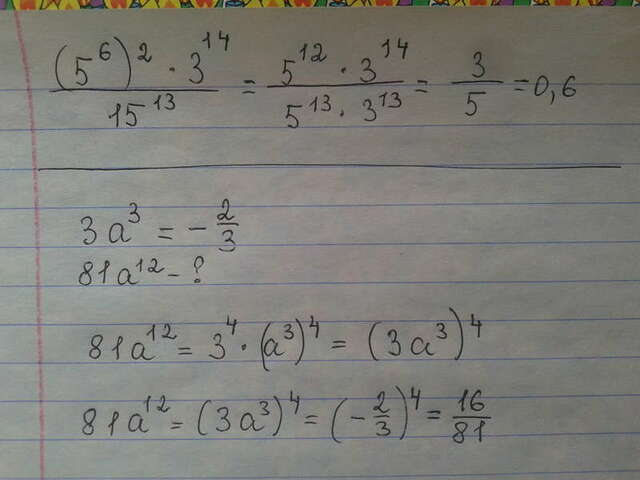 (5^6)^2 · 3^14 / 15^13 = 5^12 · 3^14 / 5^13 · 3^13 = 3/5 = 0,6
3a^3 = - 2/3
81a^12 - ?
81a^12 = 3^4 · (a^3)^4 = (3a^3)^4
81a^12 = (3a^3)^4 = (- 2/3)^4 = 16/81